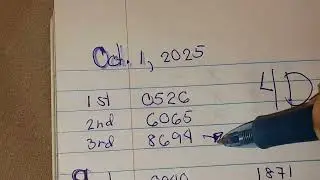 Oct. 1, 2025
4D
1st 0526
2nd 6065
3rd 8694
1871